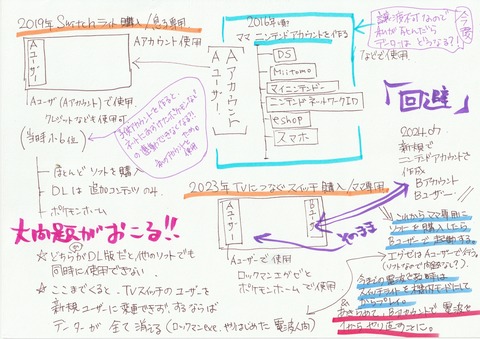 2019年 Switchライト購入/息子専用
Aユーザー
Aアカウント使用
Aユーザ(Aアカウント)で使用
クレジットなども可
(当時小6位)
ほとんどソフトを購入
DLは追加コンテンツのみ.
ポケモンホーム
2016年頃
ママ ニンテンドアカウントを作る
Aアカウント
Aユーザー
DS
Miitomo
マイニンテンドー
ニンテンドネットワークID
eshop
スマホ
などで使用
譲渡不可なので
私が死んだら
データーはどうなる?
「回避」
2024.
新規で
ニンテンドアカウントで
作成
Bアカウント
Bユーザー
2023年TVにつなぐスイッチ購入/ママ専用
Aユーザー
Bユーザー
そのまま
Aユーザーで使用
ロックマンエグゼと
ポケモンホームで使用
大問題がおこる!!
どちらかDL版だと,他のソフトでも
同時に使用できない.
ここまでくると,TVスイッチのユーザーを
新規ユーザーに変更できず,するならば
データーが全て消える
これからママ専用に
ソフトを購入したら
Bユーザーで起動する.
エグゼはAユーザーで行う.
スイッチライトを機内モードにして
からプレイ.
あきらめて,Bアカウントで電波を
1からやり直すことに.